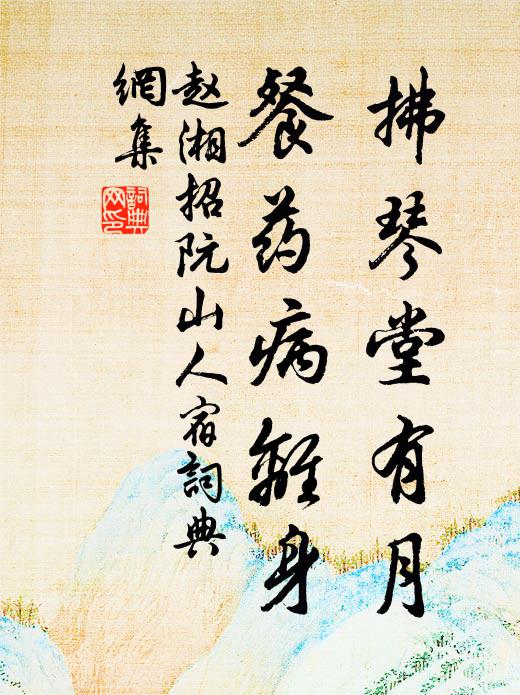 拂琴堂有月
餐药病離身
赵湘招阮山人宿詞典
網集
詞典
网印